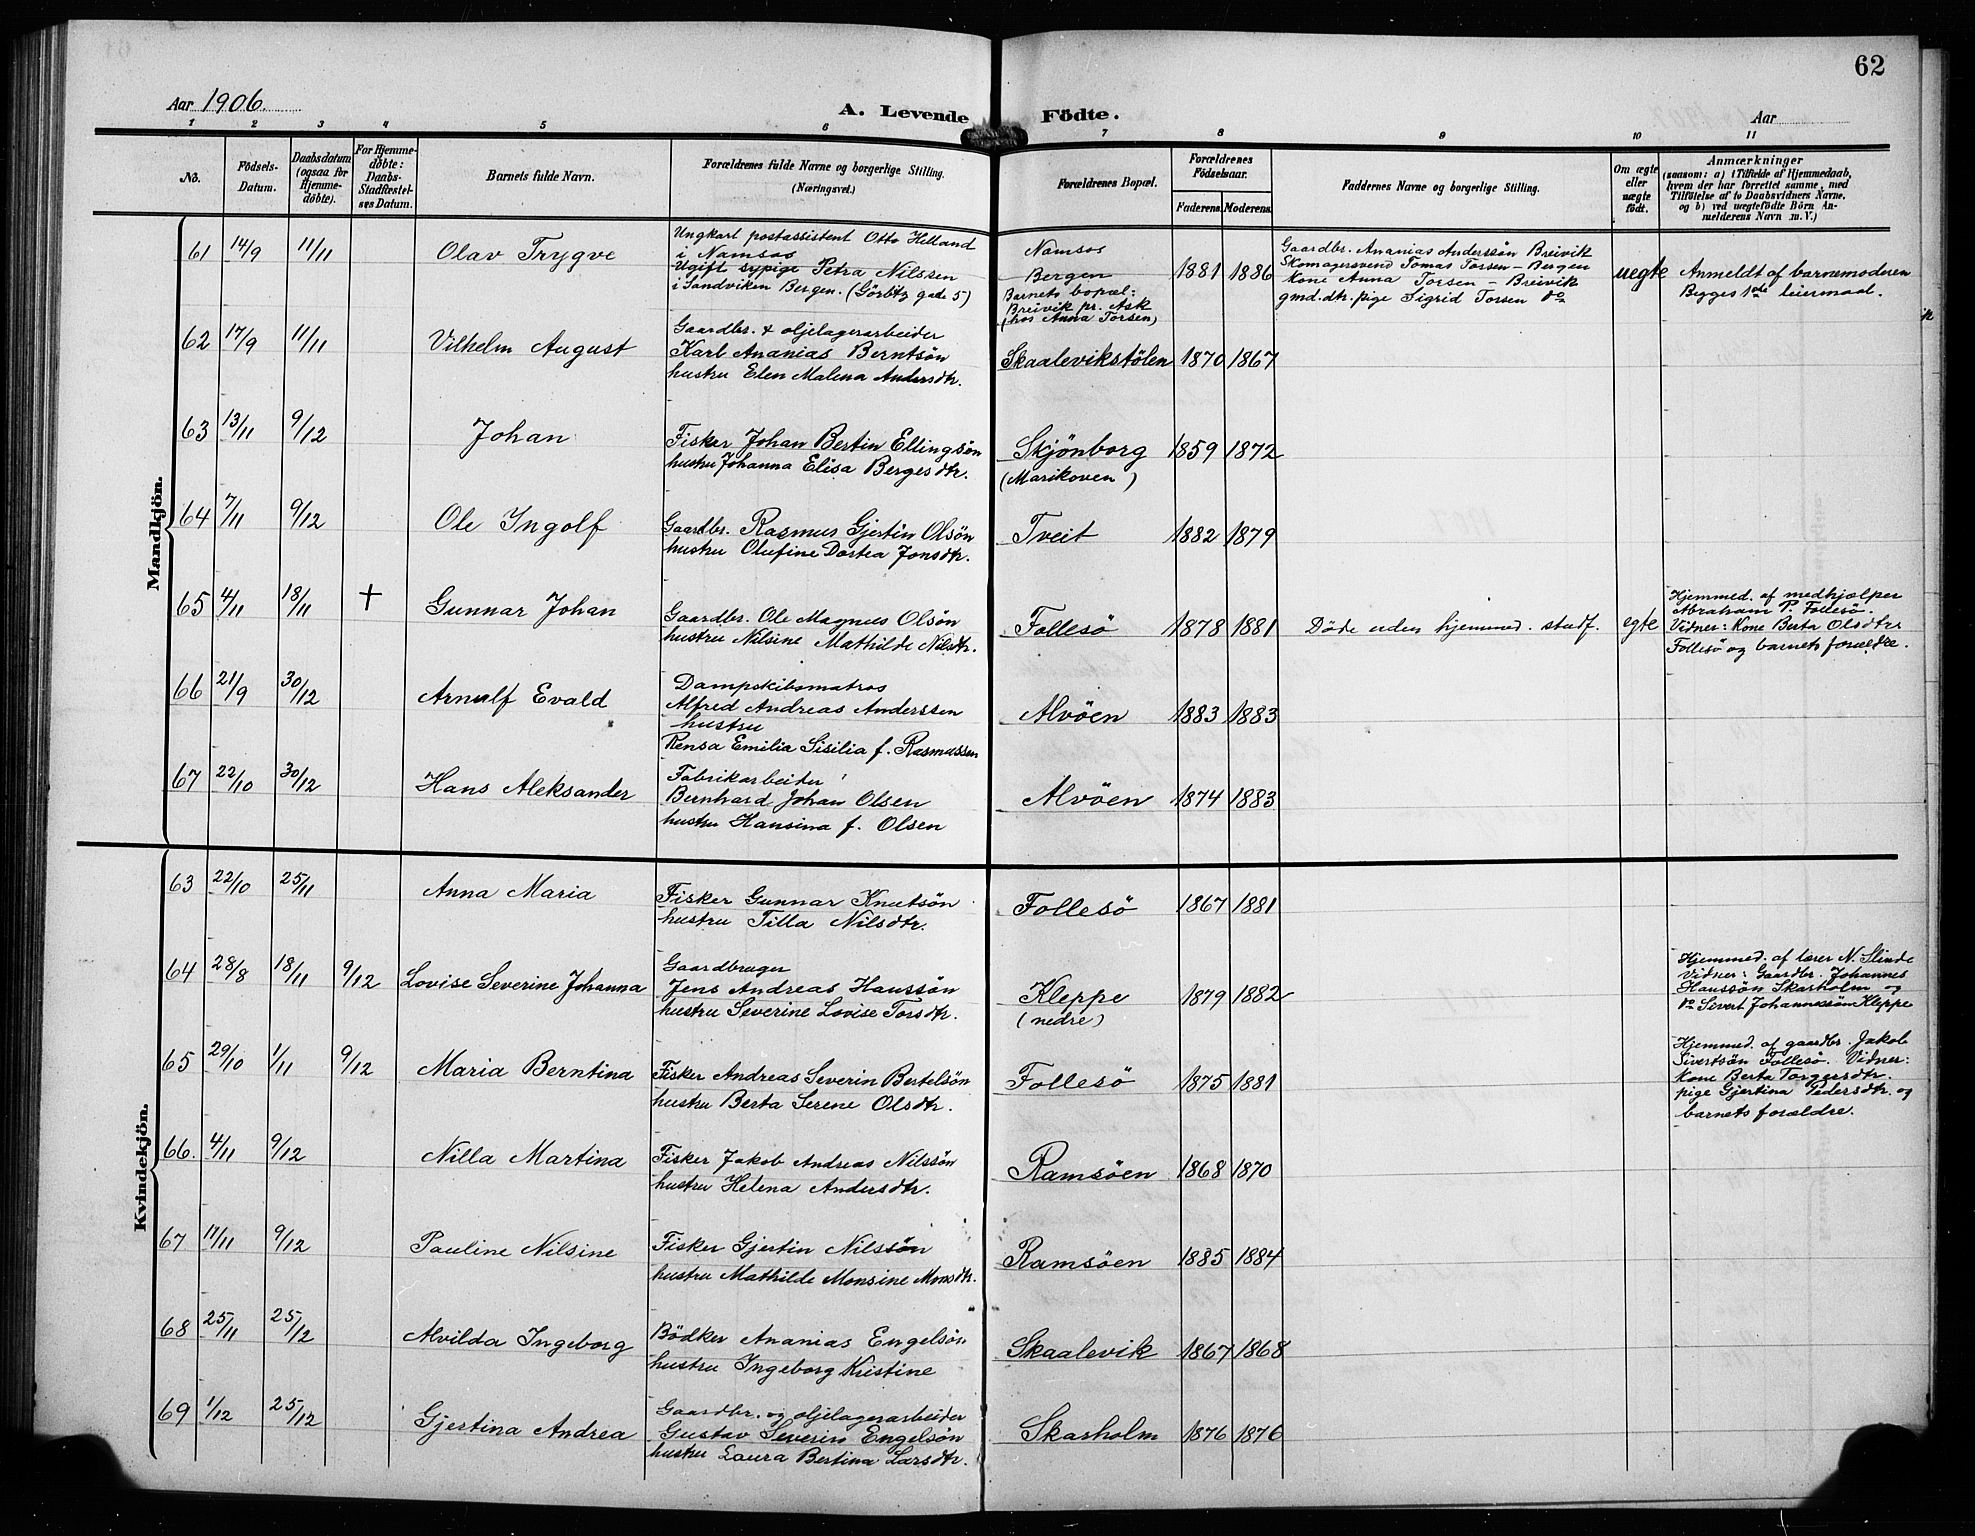 62
Aar 1906.
A. Levende Födte.
Aar
1 2 3 4 5 6 7 8 9 10 11
No.
Födsels-
Datum.
Daabsdatum
(ogsaa for
Hjemme-
döbte).
For Hjemme-
döbte:
Daabs-
Stadfæstel-
ses Datum.
Barnets fulde Navn.
Forældrenes fulde Navne og borgerlige Stilling.
(Næringsvei.)
Forældrenes Bopæl.
Forældrenes
Födselsaar.
Faderens. Moderens.
Faddernes Navne og borgerlige Stilling.
Om ægte
eller
uægte
födt.
Anmærkninger
(saasom: a) i Tilfælde af Hjemmedaab,
hvem der har forrettet samme, med
Tilföielse af to Daabsvidners Navne,
og b) ved uægtefödte Börn An-
melderens Navn m. V.)
Mandkjön.
61 14/9 11/11 Olav Trygve
Ungkarl postassistent Otto Helland
i Namsos
Ugift sypige Petra Nilssen
i Sandviken Bergen. (Görbitz gade 5)
Namsos
Bergen
Barnets bopæl:
Breivik pr. Ask
(hos Anna Torsen)
1881 1886
Gaardbr. Ananias Anderssön Breivik
Skomagersvend Tomas Torsen - Bergen
Kone Anna Torsen - Breivik
gmd.dtr. pige Sigrid Torsen do
uegte
Anmeldt af barnemoderen
Begges 1ste leiermaal.
62 17/9 11/11 Vilhelm August
Gaardbr. & oljelagerarbeider
Karl Ananias Berntsön
hustru Elen Malena Andersdtr.
Skaalevikstölen 1870 1867
63 13/11 9/12 Johan
Fisker Johan Bertin Ellingsön
hustru Johanna Elisa Bergesdtr.
Skjönborg
(Marikoven)
1859 1872
64 7/11 9/12 Ole Ingolf
Gaardbr. Rasmus Gjertin Olsön
hustru Olufine Dortea Jonsdtr.
Tveit 1882 1879
65 4/11 18/11 + Gunnar Johan
Gaardbr. Ole Magnus Olsön
hustru Nilsine Mathilde Nilsdtr.
Follesö 1878 1881 Döde uden hjemmed. stadf. egte
Hjemmed. af medhjælper
Abraham P. Follesö.
Vidner: Kone Berta Olsdtr
Follesö og barnets forældre.
66 21/9 30/12 Arnulf Evald
Dampskibsmatros
Alfred Andreas Anderssen
hustru
Rensa Emilia Sisilia f. Rasmussen
Alvöen 1883 1883
67 22/10 30/12 Hans Aleksander
Fabrikarbeider
Bernhard Johan Olsen
hustru Hansina f. Olsen
Alvöen 1874 1883
Kvindekjön.
63 22/10 25/11 Anna Maria
Fisker Gunnar Knutsön
hustru Tilla Nilsdtr.
Follesö 1867 1881
64 28/8 18/11 9/12 Lovise Severine Johanna
Gaardbruger
Jens Andreas Hanssön
hustru Severine Lovise Torsdtr.
Kleppe
(nedre)
1879 1882
Hjemmed. af lærer N. Slinde
Vidner: Gaardbr. Johannes
Hanssön Skarholm og
do Sivert Johannessön Kleppe
65 29/10 1/11 9/12 Maria Berntina
Fisker Andreas Severin Bertelsön
hustru Berta Serene Olsdtr.
Follesö 1875 1881
Hjemmed. af gaardbr. Jakob
Sivertsön Follesö. Vidner:
Kone Berta Torgersdtr.
pige Gjertina Pedersdtr. og
barnets forældre.
66. 4/11 9/12 Nilla Martina
Fisker Jakob Andreas Nilssön
hustru Helena Andersdtr.
Ramsöen 1868 1870
67 11/11 9/12 Pauline Nilsine
Fisker Gjertin Nilssön
hustru Mathilde Monsine Monsdtr.
Ramsöen 1885 1884
68 25/11 25/12 Alvilda Ingeborg
Bödker Ananias Engelsön
hustru Ingeborg Kristine
Skaalevik 1867 1868
69 1/12 25/12 Gjertina Andrea
Gaardbr. og oljelagerarbeider
Gustav Severin Engelsön
hustru Laura Bertina Larsdtr.
Skarholm 1876 1876